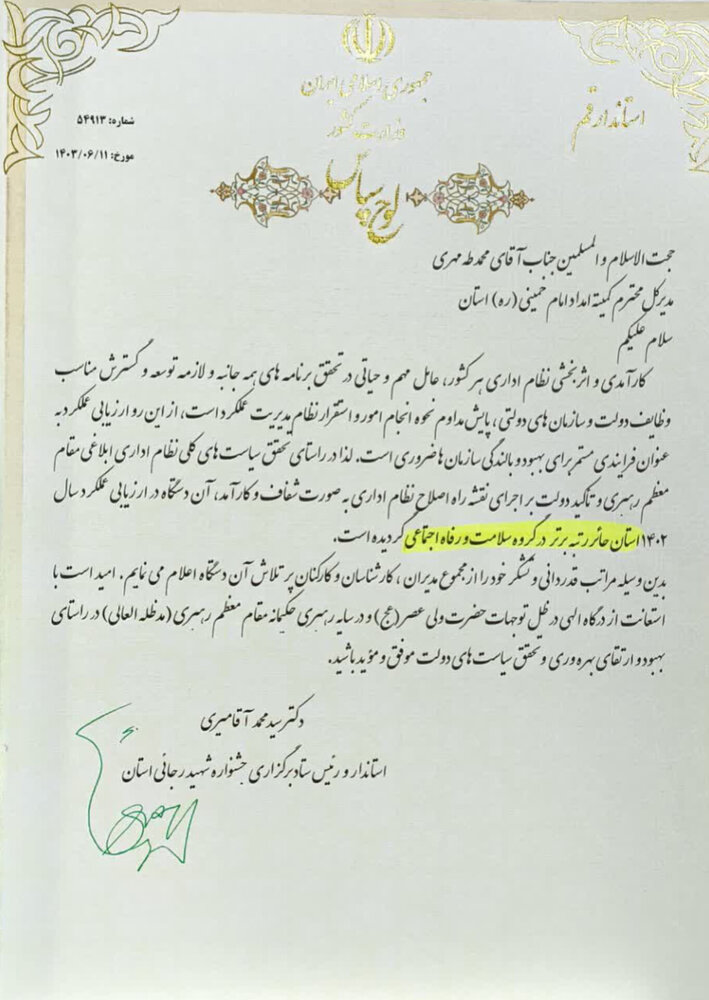 جمهوری اسلامی ایران
وزارت کشور
استاندار قم
شماره: ۵۴۹۱۳
مورخ: ۱۴۰۳/۰۶/۱۱
لوح سپاس
حجت الاسلام و المسلمین جناب آقای محمدطه مهری
مدیرکل محترم کمیته امداد امام خمینی (ره) استان
سلام علیکم
کارآمدی و اثربخشی نظام اداری هر کشور، عامل مهم و حیاتی در تحقق برنامه های همه جانبه و لازمه توسعه و گسترش مناسب
وظایف دولت و سازمان های دولتی، پایش مداوم نحوه انجام امور و استقرار نظام مدیریت عملکرد است، از این رو ارزیابی عملکرد به
عنوان فرایندی مستمر برای بهبود و بالندگی سازمان ها ضروری است. لذا در راستای تحقق سیاست های کلی نظام اداری ابلاغی مقام
معظم رهبری و تاکید دولت بر اجرای نقشه راه اصلاح نظام اداری به صورت شفاف و کارآمد، آن دستگاه در ارزیابی عملکرد سال
۱۴۰۲ استان حائز رتبه برتر در گروه سلامت و رفاه اجتماعی گردیده است.
بدین وسیله مراتب قدردانی و تشکر خود را از مجموع مدیران، کارشناسان و کارکنان پر تلاش آن دستگاه اعلام می نمایم. امید است با
استعانت از درگاه الهی در ظل توجهات حضرت ولی عصر (عج) و در سایه رهبری حکیمانه مقام معظم رهبری (مدظله العالی) در راستای
بهبود و ارتقای بهره وری و تحقق سیاست های دولت موفق و مؤید باشید.
دکتر سید محمد آقامیری
استاندار و رئیس ستاد برگزاری جشنواره شهید رجائی استان